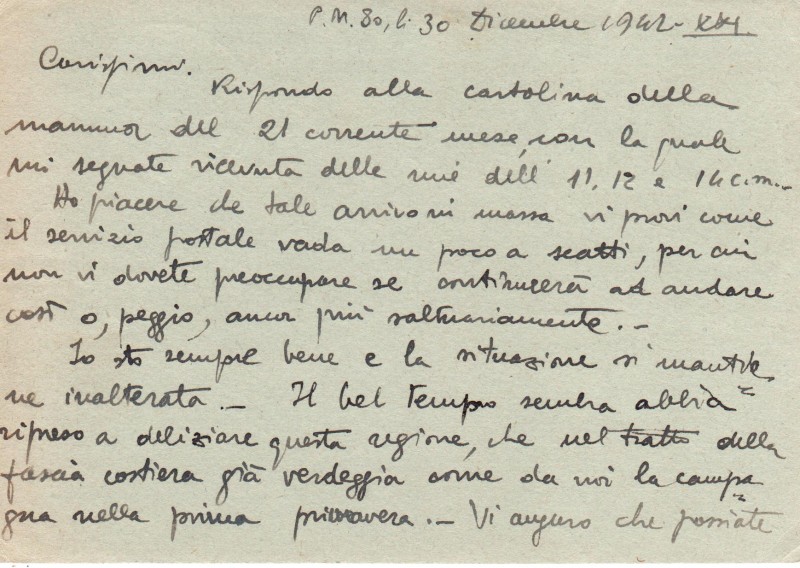 P.M. 80, li 30 Dicembre 1942 - XXI.
Carissimi.
Rispondo alla cartolina della
mamma del 21 corrente mese, con la quale
mi segnate ricevuta delle mie dell' 11, 12 e 14 c.m. -
Ho piacere che tale arrivo in massa vi provi come
il servizio postale vada un poco a scatti, per cui
non vi dovete preoccupare se continuerà ad andare
così o, peggio, ancor più saltuariamente. -
Io sto sempre bene e la situazione si mantie
ne inalterata. - Il bel tempo sembra abbia
ripreso a deliziare questa regione, che nel tratto della
fascia costiera già verdeggia come da noi la campa=
gna nella prima primavera. - Vi auguro che possiate